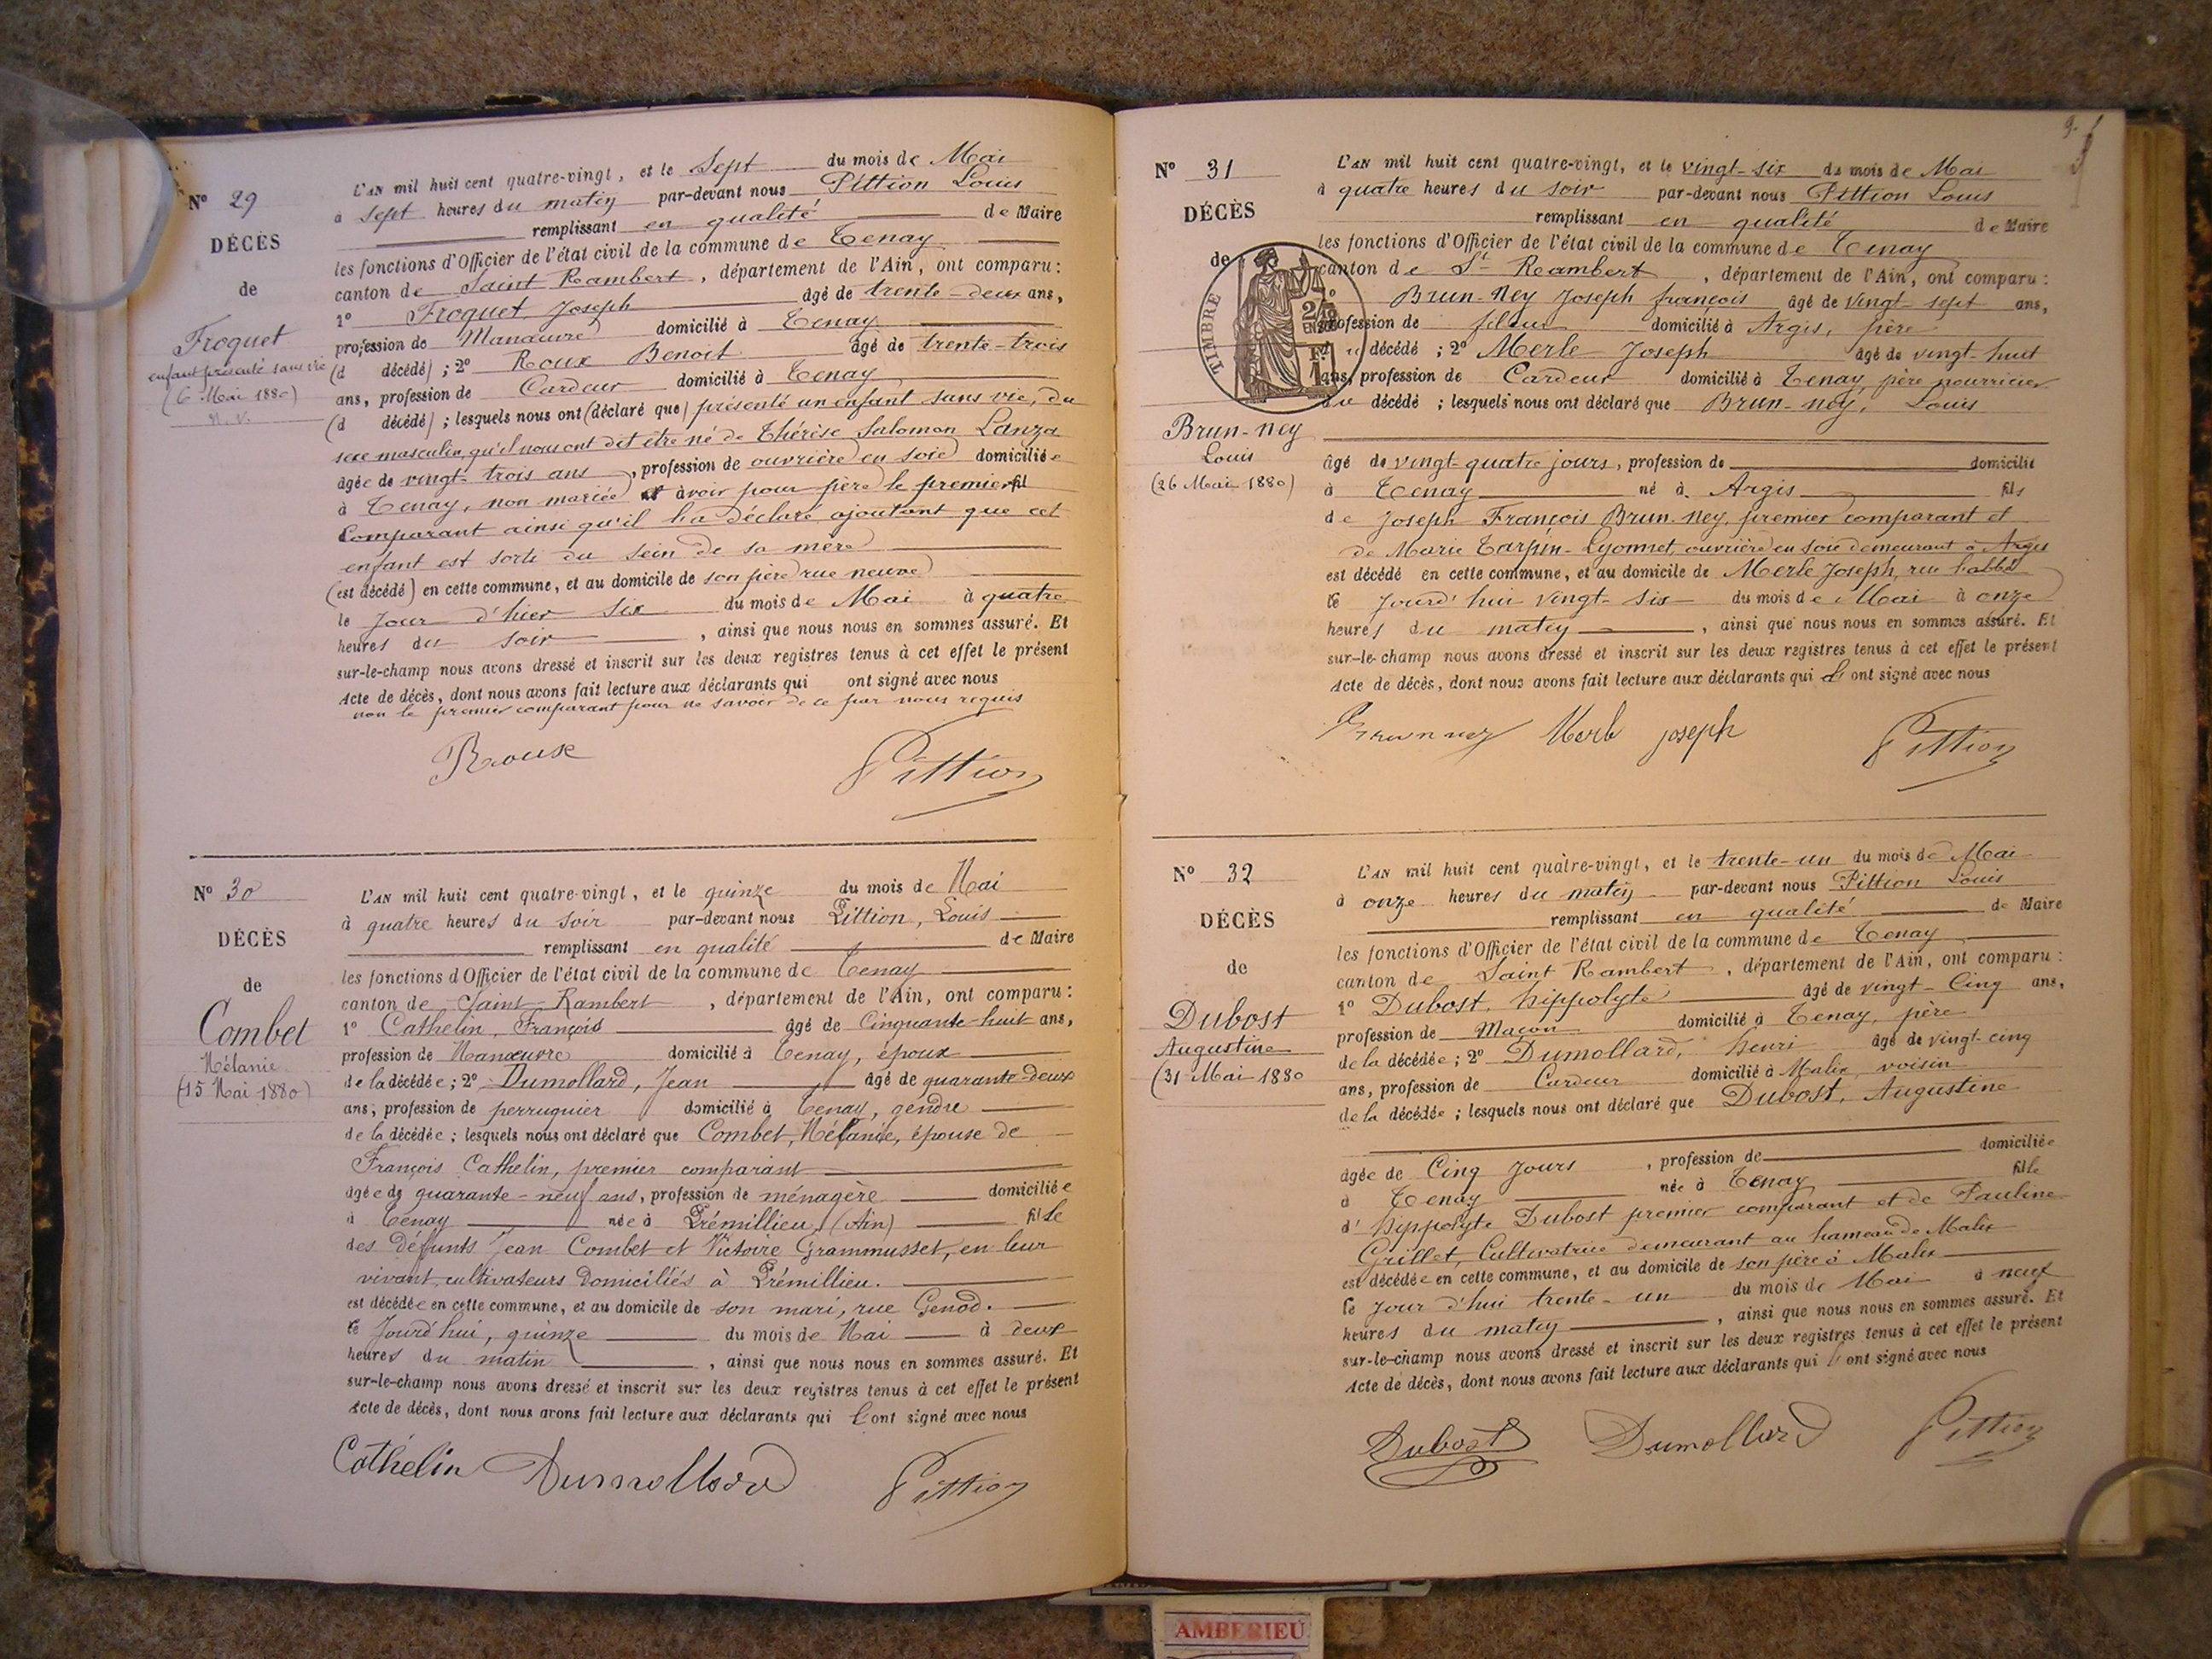 Nº 29
DÉCÈS
de
Froquet
enfant présenté sans vie
(6 Mai 1880)
N. V.
L'AN mil huit cent quatre-vingt, et le Sept du mois de Mai
à sept heures du matin par-devant nous Pittion Louis
remplissant en qualité de Maire
les fonctions d'Officier de l'état civil de la commune de Tenay
canton de Saint Rambert, département de l'Ain, ont comparu:
1º Froquet Joseph âgé de trente-deux ans,
profession de Manœuvre domicilié à Tenay
(d décédé) ; 2º Roux Benoit âgé de trente-trois
ans, profession de Cardeur domicilié à Tenay
(d décédé) ; lesquels nous ont (déclaré que) présenté un enfant sans vie, du
sexe masculin, qu'il nous ont dit être né de Thérèse Salomon Lanza
âgée de vingt-trois ans, profession de ouvrière en soie domiciliée
à Tenay, non mariée et avoir pour père le premier fil
Comparant ainsi qu'il l'a déclaré ajoutant que cet
enfant est sorti du sein de sa mère
(est décédé) en cette commune, et au domicile de son père rue neuve
le Jour d'hier Six du mois de Mai à quatre
heures du soir, ainsi que nous nous en sommes assuré. Et
sur-le-champ nous avons dressé et inscrit sur les deux registres tenus à cet effet le présent
Acte de décès, dont nous avons fait lecture aux déclarants qui ont signé avec nous
non le premier comparant pour ne savoir de ce par nous requis
Roux Pittion
Nº 30
DÉCÈS
de
Combet
Mélanie
(15 Mai 1880)
L'AN mil huit cent quatre-vingt, et le quinze du mois de Mai
à quatre heures du soir par-devant nous Pittion, Louis
remplissant en qualité de Maire
les fonctions d'Officier de l'état civil de la commune de Tenay
canton de Saint-Rambert, département de l'Ain, ont comparu:
1º Cathelin, François âgé de Cinquante-huit ans,
profession de Manœuvre domicilié à Tenay, époux
de la décédée ; 2º Dumollard, Jean âgé de quarante-deux
ans, profession de perruquier domicilié à Tenay, gendre
de la décédée ; lesquels nous ont déclaré que Combet, Mélanie, épouse de
François Cathelin, premier comparant
âgée de quarante-neuf ans, profession de ménagère domiciliée
à Tenay née à Prémillieu (Ain) fille
des défunts Jean Combet et Victoire Grammusset, en leur
vivant, cultivateurs domiciliés à Prémillieu.
est décédée en cette commune, et au domicile de son mari, rue Genod.
le Jourd'hui, quinze du mois de Mai à deux
heures du matin, ainsi que nous nous en sommes assuré. Et
sur-le-champ nous avons dressé et inscrit sur les deux registres tenus à cet effet le présent
Acte de décès, dont nous avons fait lecture aux déclarants qui l'ont signé avec nous
Cathelin Dumollard Pittion
9
Nº 31
DÉCÈS
de
TIMBRE
Brun-ney
Louis
(26 Mai 1880)
L'AN mil huit cent quatre-vingt, et le vingt-six du mois de Mai
à quatre heures du soir par-devant nous Pittion Louis
remplissant en qualité de Maire
les fonctions d'Officier de l'état civil de la commune de Tenay
canton de St Rambert, département de l'Ain, ont comparu :
1º Brun-Ney Joseph françois âgé de vingt-sept ans,
profession de fileur domicilié à Argis, père
du décédé ; 2º Merle Joseph âgé de vingt-huit
ans, profession de Cardeur domicilié à Tenay, père nourricier
du décédé ; lesquels nous ont déclaré que Brun-ney, Louis
âgé de vingt-quatre jours, profession de domicilié
à Tenay né à Argis fils
de Joseph François Brun-Ney, premier comparant et
de Marie Tarpin-Lyonnet, ouvrière en soie demeurant à Argis
est décédé en cette commune, et au domicile de Merle Joseph, rue
le jourd'hui vingt-six du mois de Mai à onze
heures du matin, ainsi que nous nous en sommes assuré. Et
sur-le-champ nous avons dressé et inscrit sur les deux registres tenus à cet effet le présent
Acte de décès, dont nous avons fait lecture aux déclarants qui l'ont signé avec nous
Brunney Merle joseph Pittion
Nº 32
DÉCÈS
de
Dubost
Augustine
(31 Mai 1880
L'AN mil huit cent quatre-vingt, et le trente-un du mois de Mai
à onze heures du matin par-devant nous Pittion Louis
remplissant en qualité de Maire
les fonctions d'Officier de l'état civil de la commune de Tenay
canton de Saint Rambert, département de l'Ain, ont comparu :
1º Dubost, hippolyte âgé de vingt-Cinq ans,
profession de Maçon domicilié à Tenay, père
de la décédée ; 2º Dumollard, henri âgé de vingt-cinq
ans, profession de Cardeur domicilié à Malix, voisin
de la décédée ; lesquels nous ont déclaré que Dubost, Augustine
âgée de Cinq Jours, profession de domiciliée
à Tenay née à Tenay fille
d' hippolyte Dubost premier comparant et de Pauline
Grillet, Cultivatrice demeurant au hameau de Malix
est décédée en cette commune, et au domicile de son père à Malix
le Jour d'hui trente-un du mois de Mai à neuf
heures du matin, ainsi que nous nous en sommes assuré. Et
sur-le-champ nous avons dressé et inscrit sur les deux registres tenus à cet effet le présent
Acte de décès, dont nous avons fait lecture aux déclarants qui l'ont signé avec nous
Dubost Dumollard Pittion
AMBERIEU